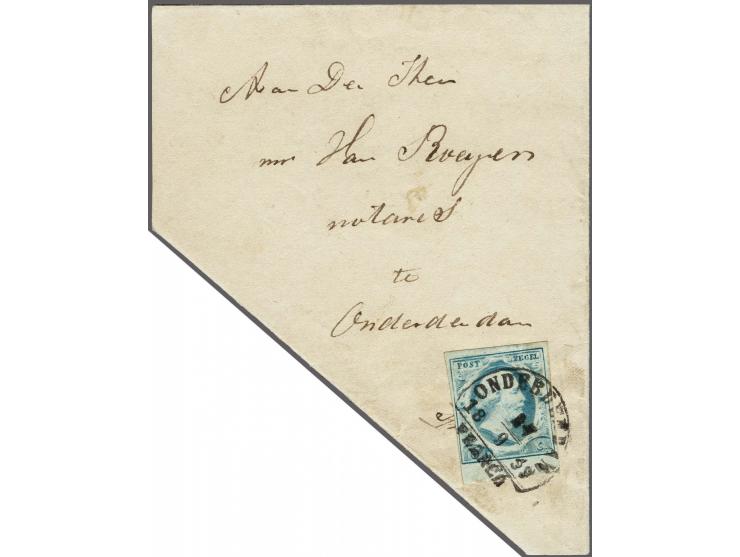 Aan Den Heer
mr Van Roeyen
notaris
te
Onderdendam
POST ZEGEL
ONDERDENDAM
18 9
FRANCO
C.